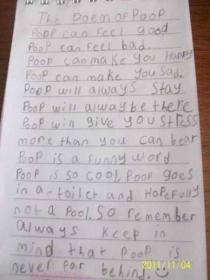 The Poem of Poop
Poop can feel good
Poop can feel bad.
Poop can make you happy
Poop can make you sad.
Poop will always stay
Poop will alway be there
Poop win give you stress
more than you can bear
Poop is a funny word
Poop is so cool, Poop goes
in a toilet and Hopefully
not a Pool. So remember
always keep in
mind that Poop is
never far behind.
2011/11/04